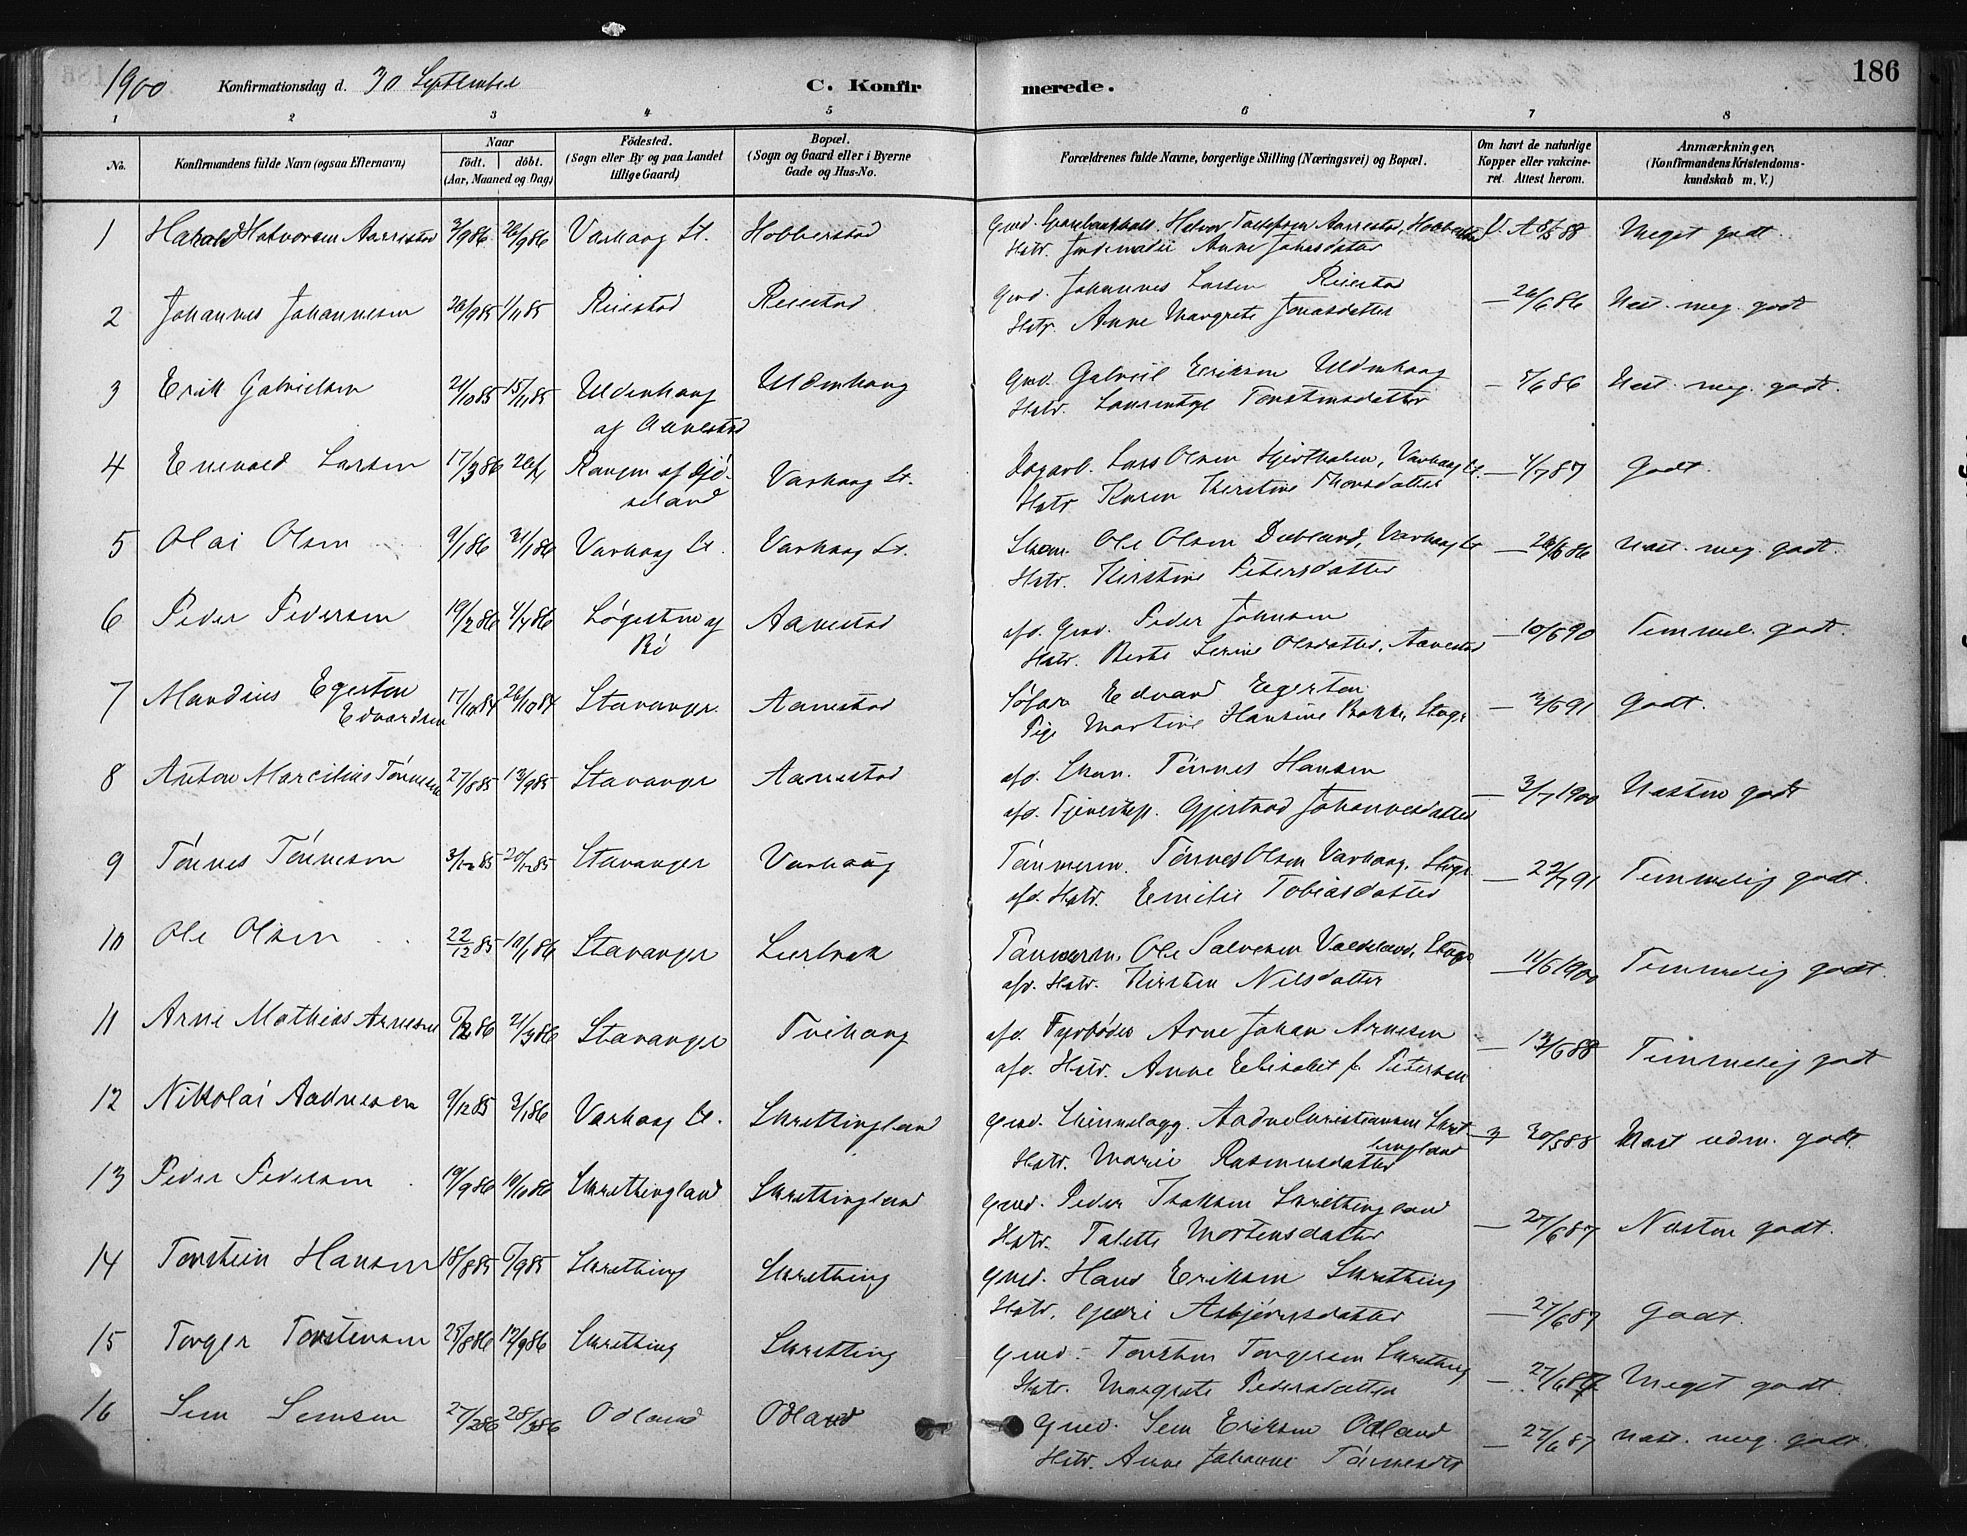 1900 Konfirmationsdag d. 30 September C. Konfir merede. 186
1 2 3 4 5 6 7 8
No. Konfirmandens fulde Navn (ogsaa Efternavn) Naar födt. döbt. (Aar, Maaned og Dag) Födested. (Sogn eller By og paa Landet tillige Gaard) Bopæl. (Sogn og Gaard eller i Byerne Gade og Hus-No. Forældrenes fulde Navne, borgerlige Stilling (Næringsvei) og Bopæl. Om havt de naturlige Kopper eller vakcineret. Attest herom. Anmærkninger. (Konfirmandens Kristendomskundskab m. V.)
1 Harald Halvorsen Aarrestad 3/9 86 26/9 86 Varhaug St. Hobberstad Gmd. Halvor Aarrestad, Hobberstad 88 Meget godt.
Hstr. Anne Johasdatter
2 Johannes Johannesen 26/9 85 1/11 85 Reiestad Reiestad Gmd. Johannes Larsen Reiestad — 26/6 86 Næst. meg. godt
Hstr. Anne Margrete Jonasdatter
3 Erik Gabrielsen 21/10 85 15/11 85 Uldenhaug Uldenhaug Gmd. Gabriel Eriksen Uldenhaug — 86 Næst. meg. godt.
af Aanestad Hstr. Torstensdatter
4 Enevold Larsen 17/3 86 af Varhaug St. Lars Olsen Varhaug St. — 87 Godt.
Hstr. Karen Kirstine Thorsdatter
5 Olai Olsen 9/1 86 31/1 86 Varhaug St. Varhaug St. Skom. Ole Olsen Varhaug St — 26/6 86 Næst. meg. godt.
Hstr. Kirstine Petersdatter
6 Peder Pedersen 19/2 86 4/4 86 af Aanestad afd. Gmd. Peder Johnsen — 10/6 90 Temmel. godt.
Bö Hstr. Berte Serine Olsdatter, Aanestad
7 Mandius Egerton 17/10 84 26/10 84 Stavanger. Aanestad Edvard Egerton — 91 Godt.
Edvardsen Pige Martine Hansine Bakke, Stvgr
8 Anton Marcilius Tönnesen 27/8 85 13/9 85 Stavanger Aanestad afd. Skom. Tönnes Hansen — 3/7 1900 Næsten godt
afd. Tjenestep. Gjertrud Johannesdatter
9 Tönnes Tönnesen 3/12 85 20/12 85 Stavanger Varhaug Tömmerm. Tönnes Olsen Varhaug, Stvgr — 22/7 91 Temmelig godt.
afd. Hstr. Emilie Tobiasdatter
10 Ole Olsen 22/12 85 10/1 86 Stavanger Tömmerm. Ole Salvesen Stvgr — 11/6 1900 Temmelig godt.
afd. Hstr. Kirsten Nilsdatter
11 Arne Mathias Arnesen 86 21/3 86 Stavanger Tvihaug afd. Fyrböder Arne Johan Arnesen — 13/6 88 Temmelig godt
afd. Hstr. Anne Elisabet f. Petersen
12 Nikolai Aadnesen 9/12 85 3/1 86 Varhaug St. Skrettingland Gmd. Aadne Christiansen Skrettingland — 30/5 88 Næst udm. godt.
Hstr. Marie Rasmusdatter
13 Peder Pedersen 19/9 86 10/10 86 Skrettingland Skrettingland Gmd. Peder Isaksen Skrettingland — 27/6 87 Næsten godt.
Hstr. Talette Mortensdatter
14 Torstein Hansen 18/8 85 6/9 85 Skretting Skretting Gmd. Hans Eriksen Skretting — 27/6 87 Godt.
Hstr. Guri Asbjörnsdatter
15 Torger Torstensen 25/8 86 12/9 86 Skretting Skretting Gmd. Torsten Torgersen Skretting — 27/6 87 Meget godt.
Hstr. Margrete Pedersdatter
16 Sem Semsen 27/2 86 28/3 86 Odland Odland Gmd. Sem Eriksen Odland — 27/6 87 Næst. meg. godt.
Hstr. Anne Johanne Tönnesdtr